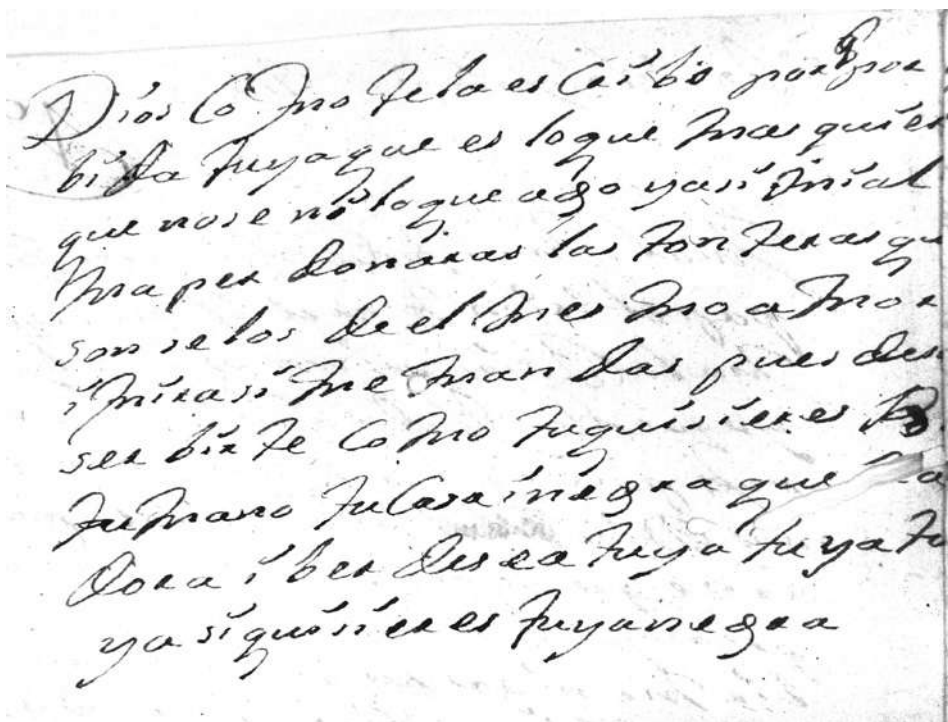 Dios Como te la escribo por q por
bida tuya que es lo que mas quier
que no se ni lo que ago y asi mial
ma perdonaras las tonteras qu
son selos de el mesmo amor
i mira si me mandas pues dese
serbirte Como tu quisieres
tu mano tu Casa i negra que
dora i ber desea tuya tuya tu
ya si quisieres tuya negra